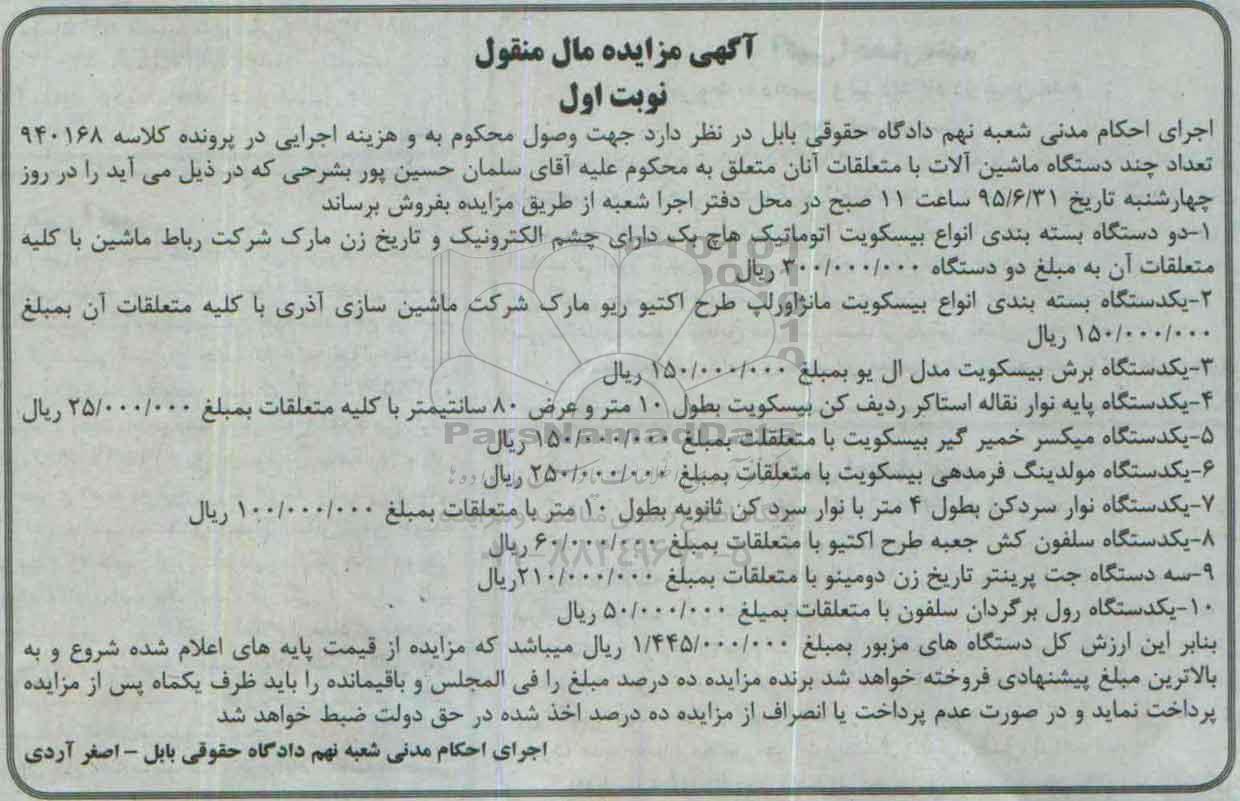 آگهی مزایده مال منقول
نوبت اول
اجرای احکام مدنی شعبه نهم دادگاه حقوقی بابل در نظر دارد جهت وصول محکوم به و هزینه اجرایی در پرونده کلاسه ۹۴۰۱۶۸
تعداد چند دستگاه ماشین آلات با متعلقات آنان متعلق به محکوم علیه آقای سلمان حسین پور بشرحی که در ذیل می آید را در روز
چهارشنبه تاریخ ۹۵/۶/۳۱ ساعت ۱۱ صبح در محل دفتر اجرا شعبه از طریق مزایده بفروش برساند
۱-دو دستگاه بسته بندی انواع بیسکویت اتوماتیک هاچ بک دارای چشم الکترونیک و تاریخ زن مارک شرکت رباط ماشین با کلیه
متعلقات آن به مبلغ دو دستگاه ۳۰۰/۰۰۰/۰۰۰ ریال
۲-یکدستگاه بسته بندی انواع بیسکویت مانژاورلپ طرح اکتیو ریو مارک شرکت ماشین سازی آذری با کلیه متعلقات آن بمبلغ
۱۵۰/۰۰۰/۰۰۰ ریال
۳-یکدستگاه برش بیسکویت مدل ال یو بمبلغ ۱۵۰/۰۰۰/۰۰۰ ریال
۴-یکدستگاه پایه نوار نقاله استاکر ردیف کن بیسکویت بطول ۱۰ متر و عرض ۸۰ سانتیمتر با کلیه متعلقات بمبلغ ۲۵/۰۰۰/۰۰۰ ریال
۵-یکدستگاه میکسر خمیر گیر بیسکویت با متعلقلت بمبلغ ۱۵۰/۰۰۰/۰۰۰ ریال
۶-یکدستگاه مولدینگ فرمدهی بیسکویت با متعلقات بمبلغ ۲۵۰/۰۰۰/۰۰۰ ریال
۷-یکدستگاه نوار سردکن بطول ۴ متر با نوار سرد کن ثانویه بطول ۱۰ متر با متعلقات بمبلغ ۱۰۰/۰۰۰/۰۰۰ ریال
۸-یکدستگاه سلفون کش جعبه طرح اکتیو با متعلقات بمبلغ ۶۰/۰۰۰/۰۰۰ ریال
۹-سه دستگاه جت پرینتر تاریخ زن دومینو با متعلقات بمبلغ ۲۱۰/۰۰۰/۰۰۰ریال
۱۰-یکدستگاه رول برگردان سلفون با متعلقات بمبلغ ۵۰/۰۰۰/۰۰۰ ریال
بنابر این ارزش کل دستگاه های مزبور بمبلغ ۱/۴۴۵/۰۰۰/۰۰۰ ریال میباشد که مزایده از قیمت پایه های اعلام شده شروع و به
بالاترین مبلغ پیشنهادی فروخته خواهد شد برنده مزایده ده درصد مبلغ را فی المجلس و باقیمانده را باید ظرف یکماه پس از مزایده
پرداخت نماید و در صورت عدم پرداخت یا انصراف از مزایده ده درصد اخذ شده در حق دولت ضبط خواهد شد
اجرای احکام مدنی شعبه نهم دادگاه حقوقی بابل - اصغر آردی
ParsNamadData